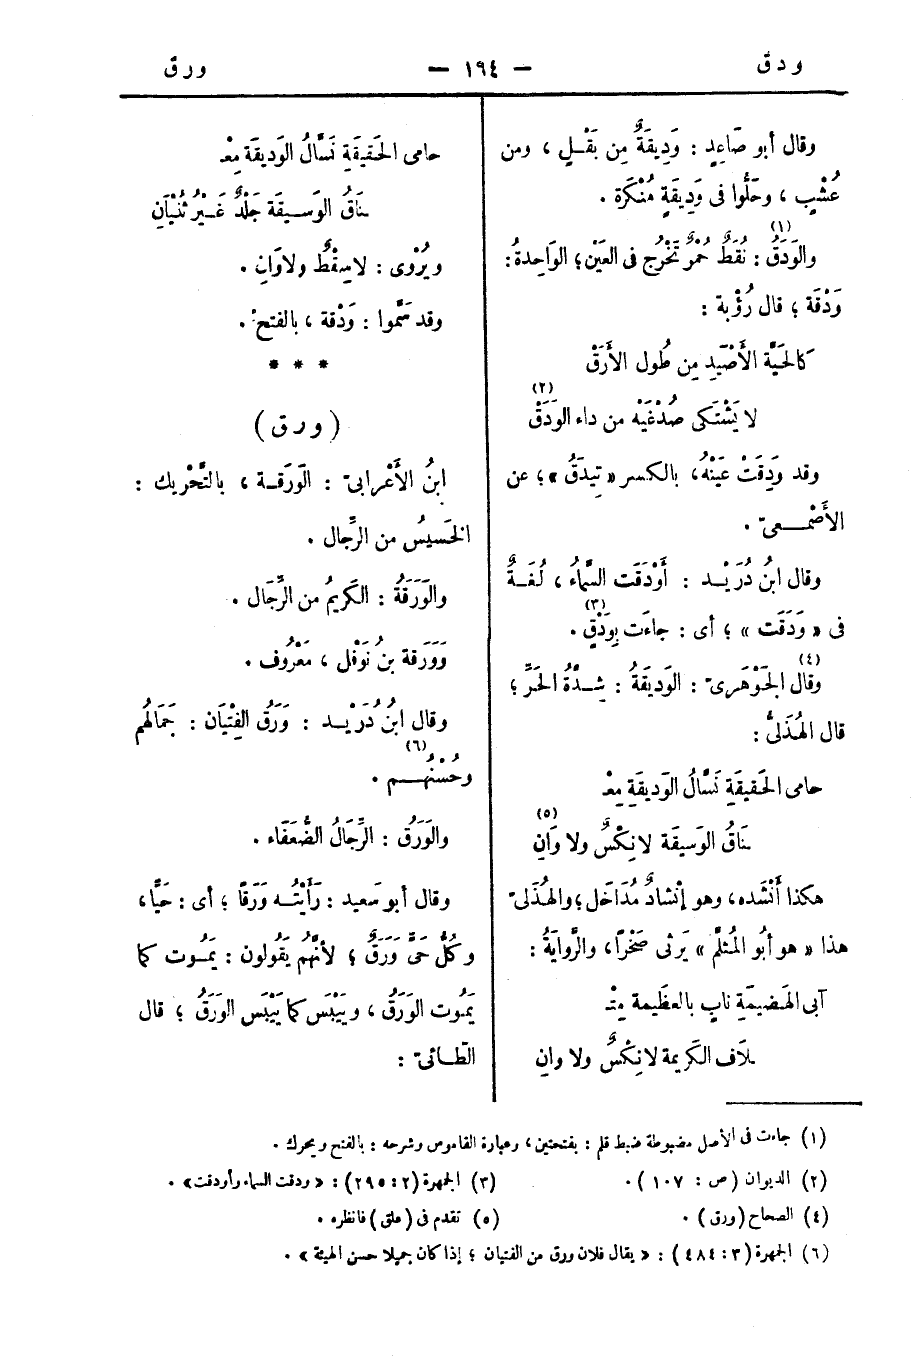 ودق
— ١٩٤ —
ورق
وقال أبو صَاعِدٍ : وَدِيقَةٌ مِن بَقْلٍ ، ومن
عُشْبٍ ، وحَلُّوا فى وَدِيقَةٍ مُنْكَرَة .
والوَدَقُ (١) : نُقَطٌ حُمْرٌ تَخْرُج فى العَيْن ؛ الوَاحِدةُ :
وَدْقَة ؛ قال رُؤْبة :
كالحَيَّة الأَصْيَدِ مِن طُول الأَرَقْ
لا يَشْتَكى صُدْغَيْه من داء الوَدَقْ (٢)
وقد وَدِقَتْ عَيْنُه ، بالكسر « تِيدَقُ » ؛ عن
الأَصْمعىّ .
وقال ابنُ دُرَيْد : أَوْدَقَت السَّماءُ ، لُغَةٌ
فى « وَدَقَت » ؛ أى : جاءَت بِوَدْقٍ (٣) .
وقال الجَوْهَرىّ (٤) : الوَدِيقَةُ : شِدَّةُ الحَرِّ ؛
قال الهُذَلىُّ :
حامى الحَقيقَةِ نَسَّالُ الوَديقَةِ مِعْـ
ـنَاقُ الوَسيقَة لا نِكْسٌ ولا وَانِ (٥)
هكذا أَنْشَده ، وهو إنْشادٌ مُدَاخَل ؛ والهُذَلىّ
هذا « هو أبُو المُثلَّم » يَرثى صَخْرًا ، والرِّوايَةُ :
آبى الهَضيمَةِ نابٍ بالعظيمة مِتْـ
ـلَاف الكَريمة لا نِكْسٌ ولا وانِ
حامى الحَقيقَةِ نَسَّالُ الوَديقَة مِعْـ
ـنَاقُ الوَسيقَة جَلْدٌ غَيْرُ ثُنْيَانِ
ويُرْوى : لا سِقْطٌ ولا وَانِ .
وقد سَمَّوا : وَدْقة ، بالفتح .
* * *
(ورق)
ابنُ الأَعْرابىّ : الوَرَقة ، بالتَّحْريك :
الخَسيسُ من الرِّجال .
والوَرَقَةُ : الكَريمُ من الرِّجَال .
وَوَرَقة بنُ نَوْفل ، مَعْرُوف .
وقال ابنُ دُرَيْد : وَرَقُ الفِتْيَان : جَمَالُهم
وحُسْنُهم (٦) .
والوَرَقُ : الرِّجَالُ الضُّعَفَاء .
وقال أبو سَعيد : رَأَيْتُه وَرَقًا ؛ أى : حَيًّا ،
وكُلُّ حَىٍّ وَرَقٌ ؛ لأنَّهُم يَقُولون : يَمُوت كما
يَمُوت الوَرَقُ ، ويَيْبَس كما يَيْبَس الوَرَقُ ؛ قال
الطّائىّ :
(١) جاءت فى الأصل مضبوطة ضبط قلم : بفتحتين ، وعبارة القاموس وشرحه : بالفتح ويحرك .
(٢) الديوان (ص : ١٠٧) .
(٣) الجمهرة (٢ : ٢٩٥) : « ودقت السماء وأودقت » .
(٤) الصحاح (ورق) .
(٥) تقدم فى (ملق) فانظره .
(٦) الجمهرة (٣ : ٤٨٤) : « يقال فلان ورق من الفتيان ؛ إذا كان جميلا حسن الهيئة » .